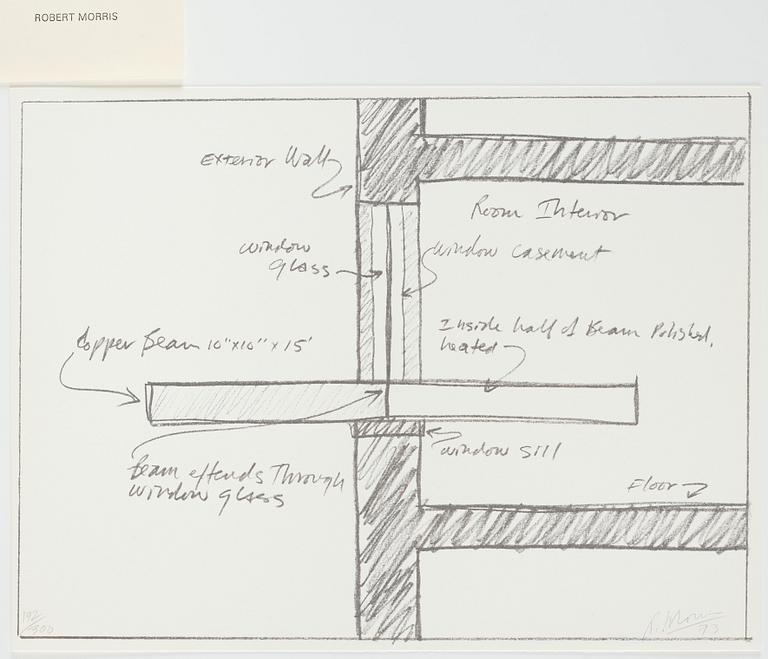 ROBERT MORRIS
Exterior Wall
Room Interior
window
glass
window casement
Inside half of Beam Polished,
heated
Copper Beam 10"x10" x 15'
window sill
Beam extends Through
window glass
Floor
192/300
R. Morris 73